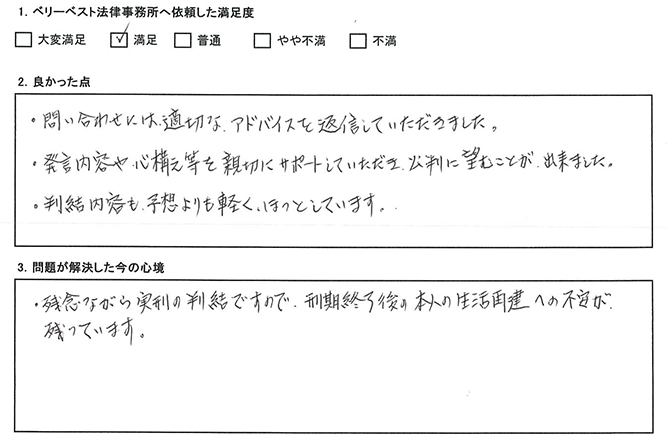 1. ベリーベスト法律事務所へ依頼した満足度
□ 大変満足 ☑ 満足 □ 普通 □ やや不満 □ 不満
2. 良かった点
・問い合わせには適切な、アドバイスを返信していただきました。
・発言内容や心構え等を親切にサポートしていただき、公判に望むことが、出来ました。
・判結内容も、予想よりも軽く、ほっとしています。
3. 問題が解決した今の心境
・残念ながら実刑の判結ですので、刑期終了後の本人の生活再建への不安が、
残っています。